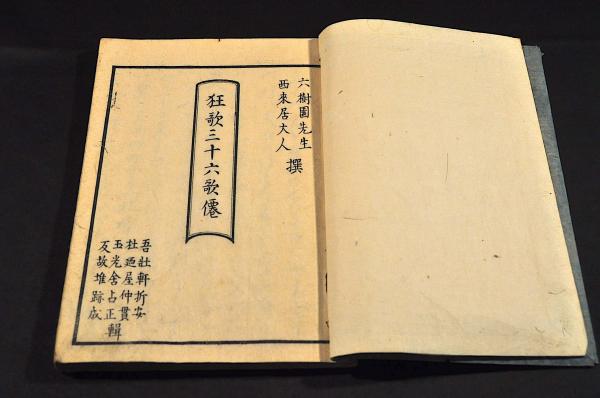 六樹園先生
西来居大人
撰
狂歌三十六歌僊
吾壮軒折安
杜廼屋仲貫
玉光舎占正
反故堆跡成
輯